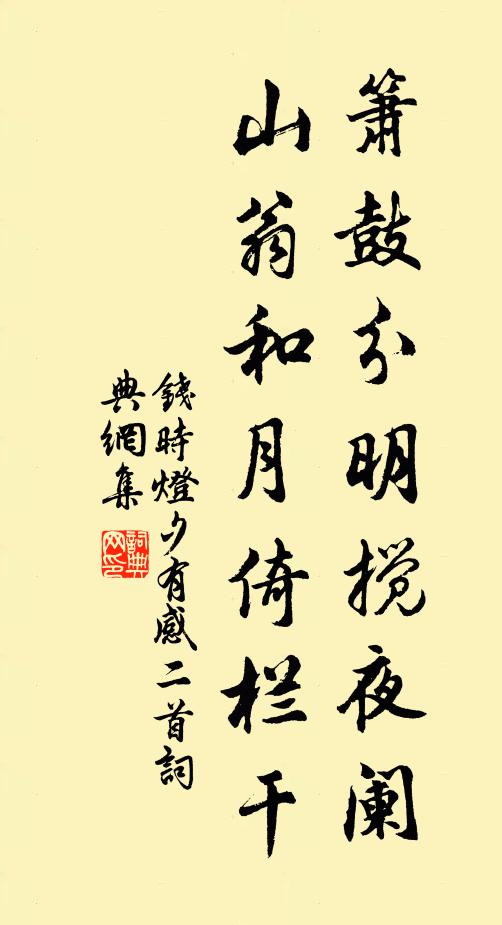 箫鼓分明搅夜阑
山翁和月倚栏干
錢時燈夕有感二首詞
典網集
詞典
网印